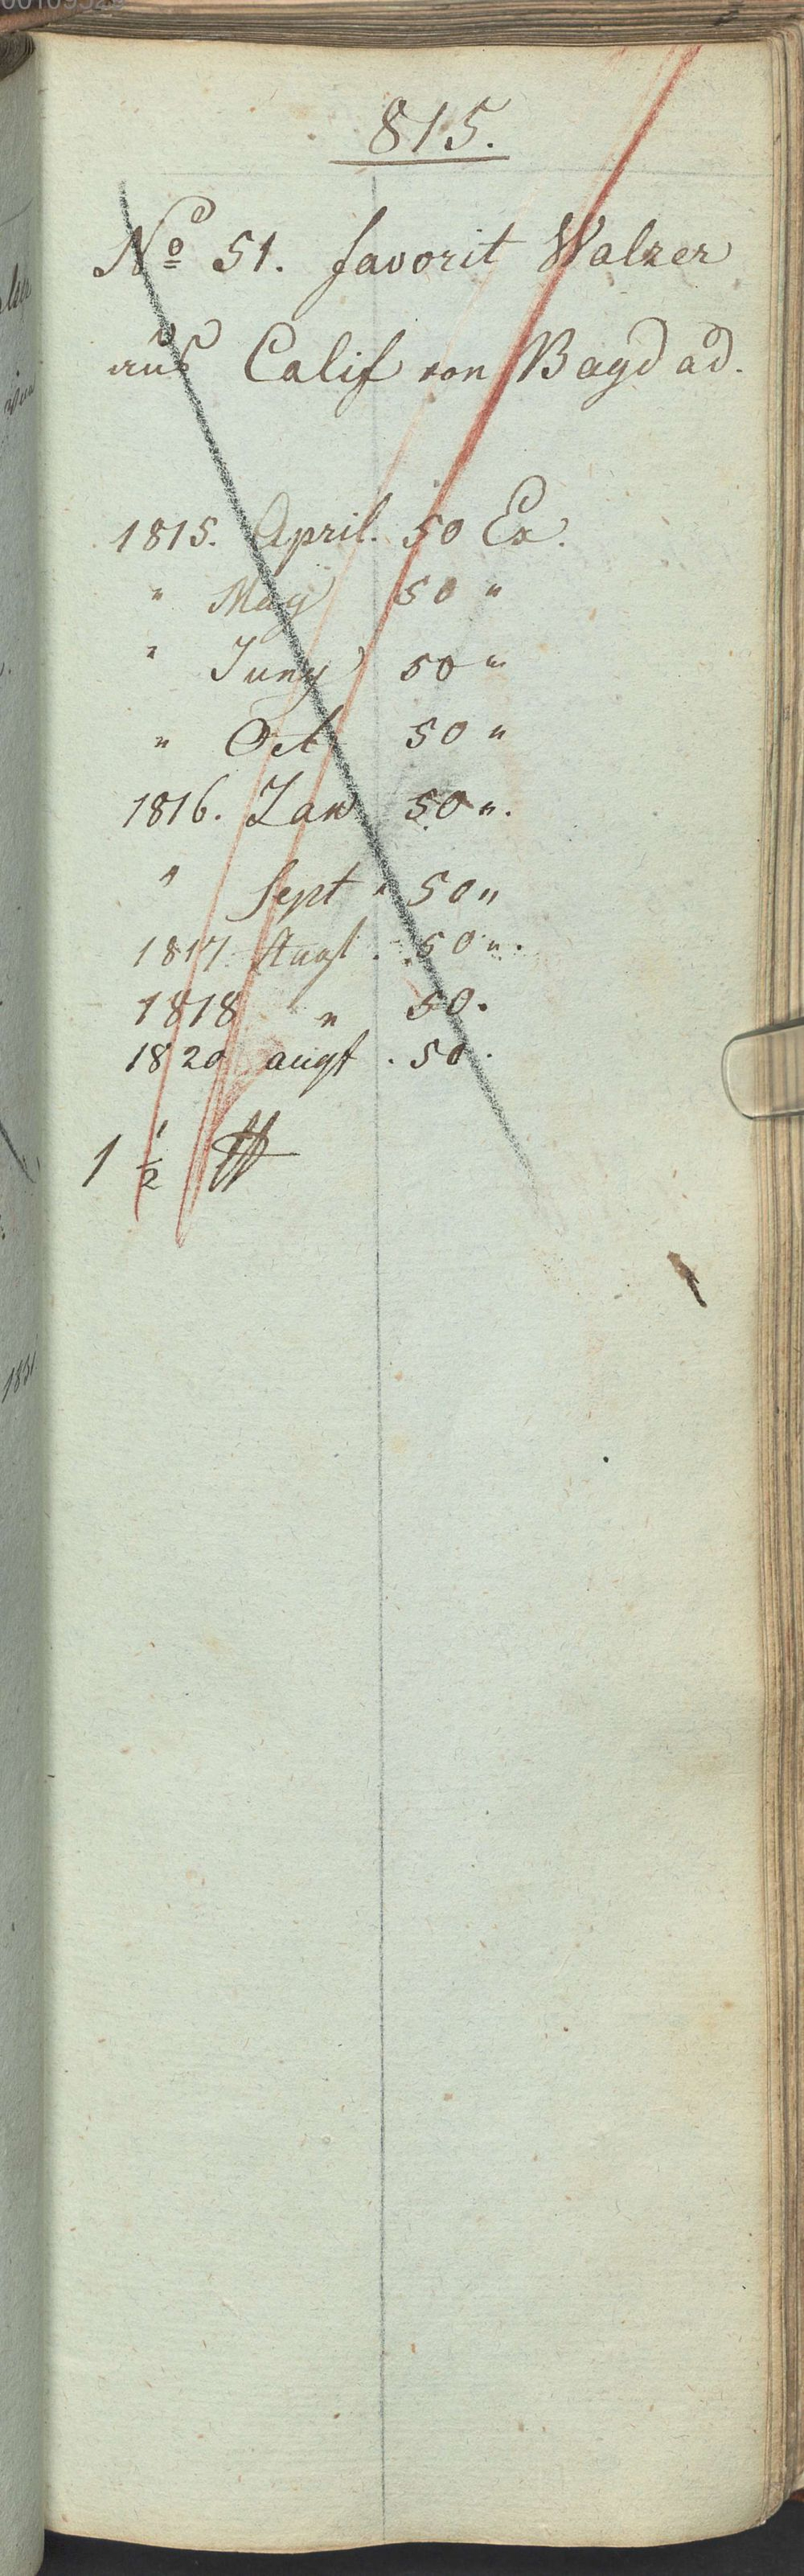 815.
No 51. favorit Walzer
aus Calif von Bagdad.
1815. April. 50 Ex.
" May 50 "
" Juny 50 "
" Oct 50 "
1816. Jan 50 ".
" Sept. 50 "
1817 Augt. 50 ".
1818 " 50.
1820 augt. 50.
1 1/2 ℔
1831